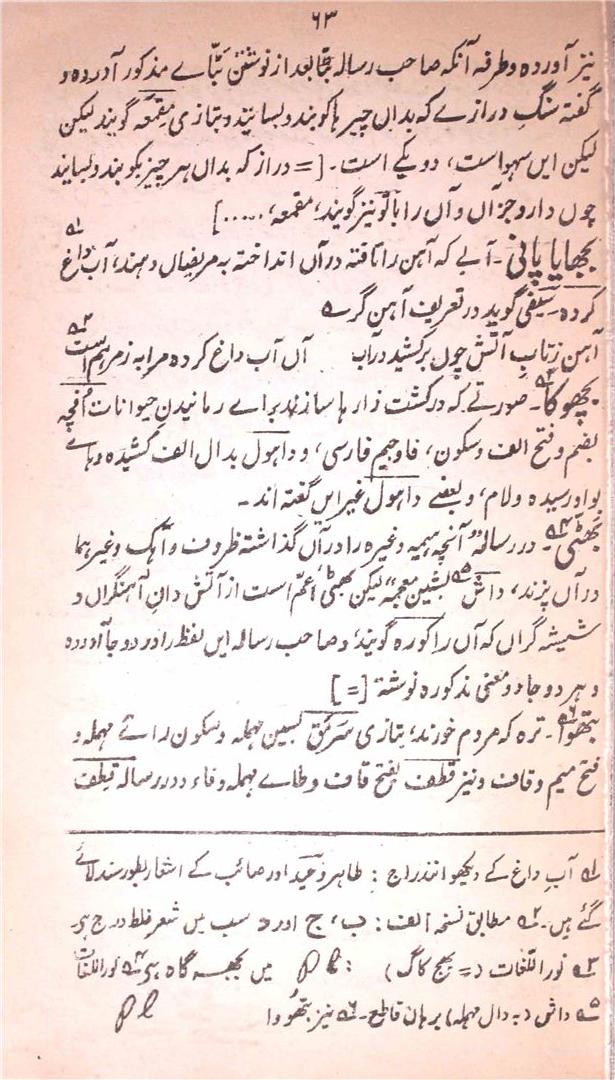 ۶۳
نیز آورده و طرفه آنکه صاحب رساله بتّا بعد از نوشتن بَتّا بے مذکور آورده و
گفته سنگِ درازے که بداں چیز ہا کوبند و بسایند و بتازی مِقمعَه گویند لیکن
لیکن ایں سہو است، دو یکے است۔ [= دراز که بداں ہر چیز بکوبند و بسایند
چوں دارو جز آں و آں را باکو نیز گویند، مقمعه، .....]
بجھایا پانی۔ آبے که آہن را تافته در آں انداخته به مریضاں دہند، آب داغ ۱ے
کرده۔ سیفی گوید در تعریف آہن گر ے
آہن ز تابِ آتش چوں برکشید در آب    آں آب داغ کرده مرا به ز مرہم است ۲ے
بجھوکا ۳ے۔ صورتے که در کشت زار ہا سازند براے رمانیدنِ حیوانات اُفچه
بضم و فتح الف و سکون، فا و جیم فارسی، و داہول بدال الف کشیده و ہاے
بواو رسیده و لام، و بعضے داہول غیر ایں گفته اند۔
بَھٹّی ۴ے۔ در رساله "آنچه ہیمیه وغیره را در آں گذاشته ظروف و آہک وغیر ہما
در آں پزند، داش ۵ے بشین معجمه" لیکن بھٹی اعمّ است از آتش دانِ آہنگراں و
شیشه گراں که آں را کوره گویند، و صاحب رساله ایں لفظ را در دو جا آورده
و ہر دو جا دو معنی مذکوره نوشته [=]
بتھوا ۶ے۔ تره که مردم خورند، بتازی سَرمَق بسین مہمله و سکون راے مہمله و
فتح میم و قاف و نیز قطَف بفتح قاف و طاے مہمله و فاء و در رساله قِطف
۱ے آبِ داغ کے دیکھو اندراج : طاہر وحید اور صائب کے اشعار بطور سند لائے
گئے ہیں۔ ۲ے مطابق نسخه الف : ب، ج اور د سب میں شعر غلط درج ہے۔
۳ے نور اللغات (= بیج کاگ) Pl : میں بجھسه گاه ہے ۴ے نور اللغات
۵ے داش (به دال مہمله) برہان قاطع۔ ۶ے نیز بتھُووا    Pl